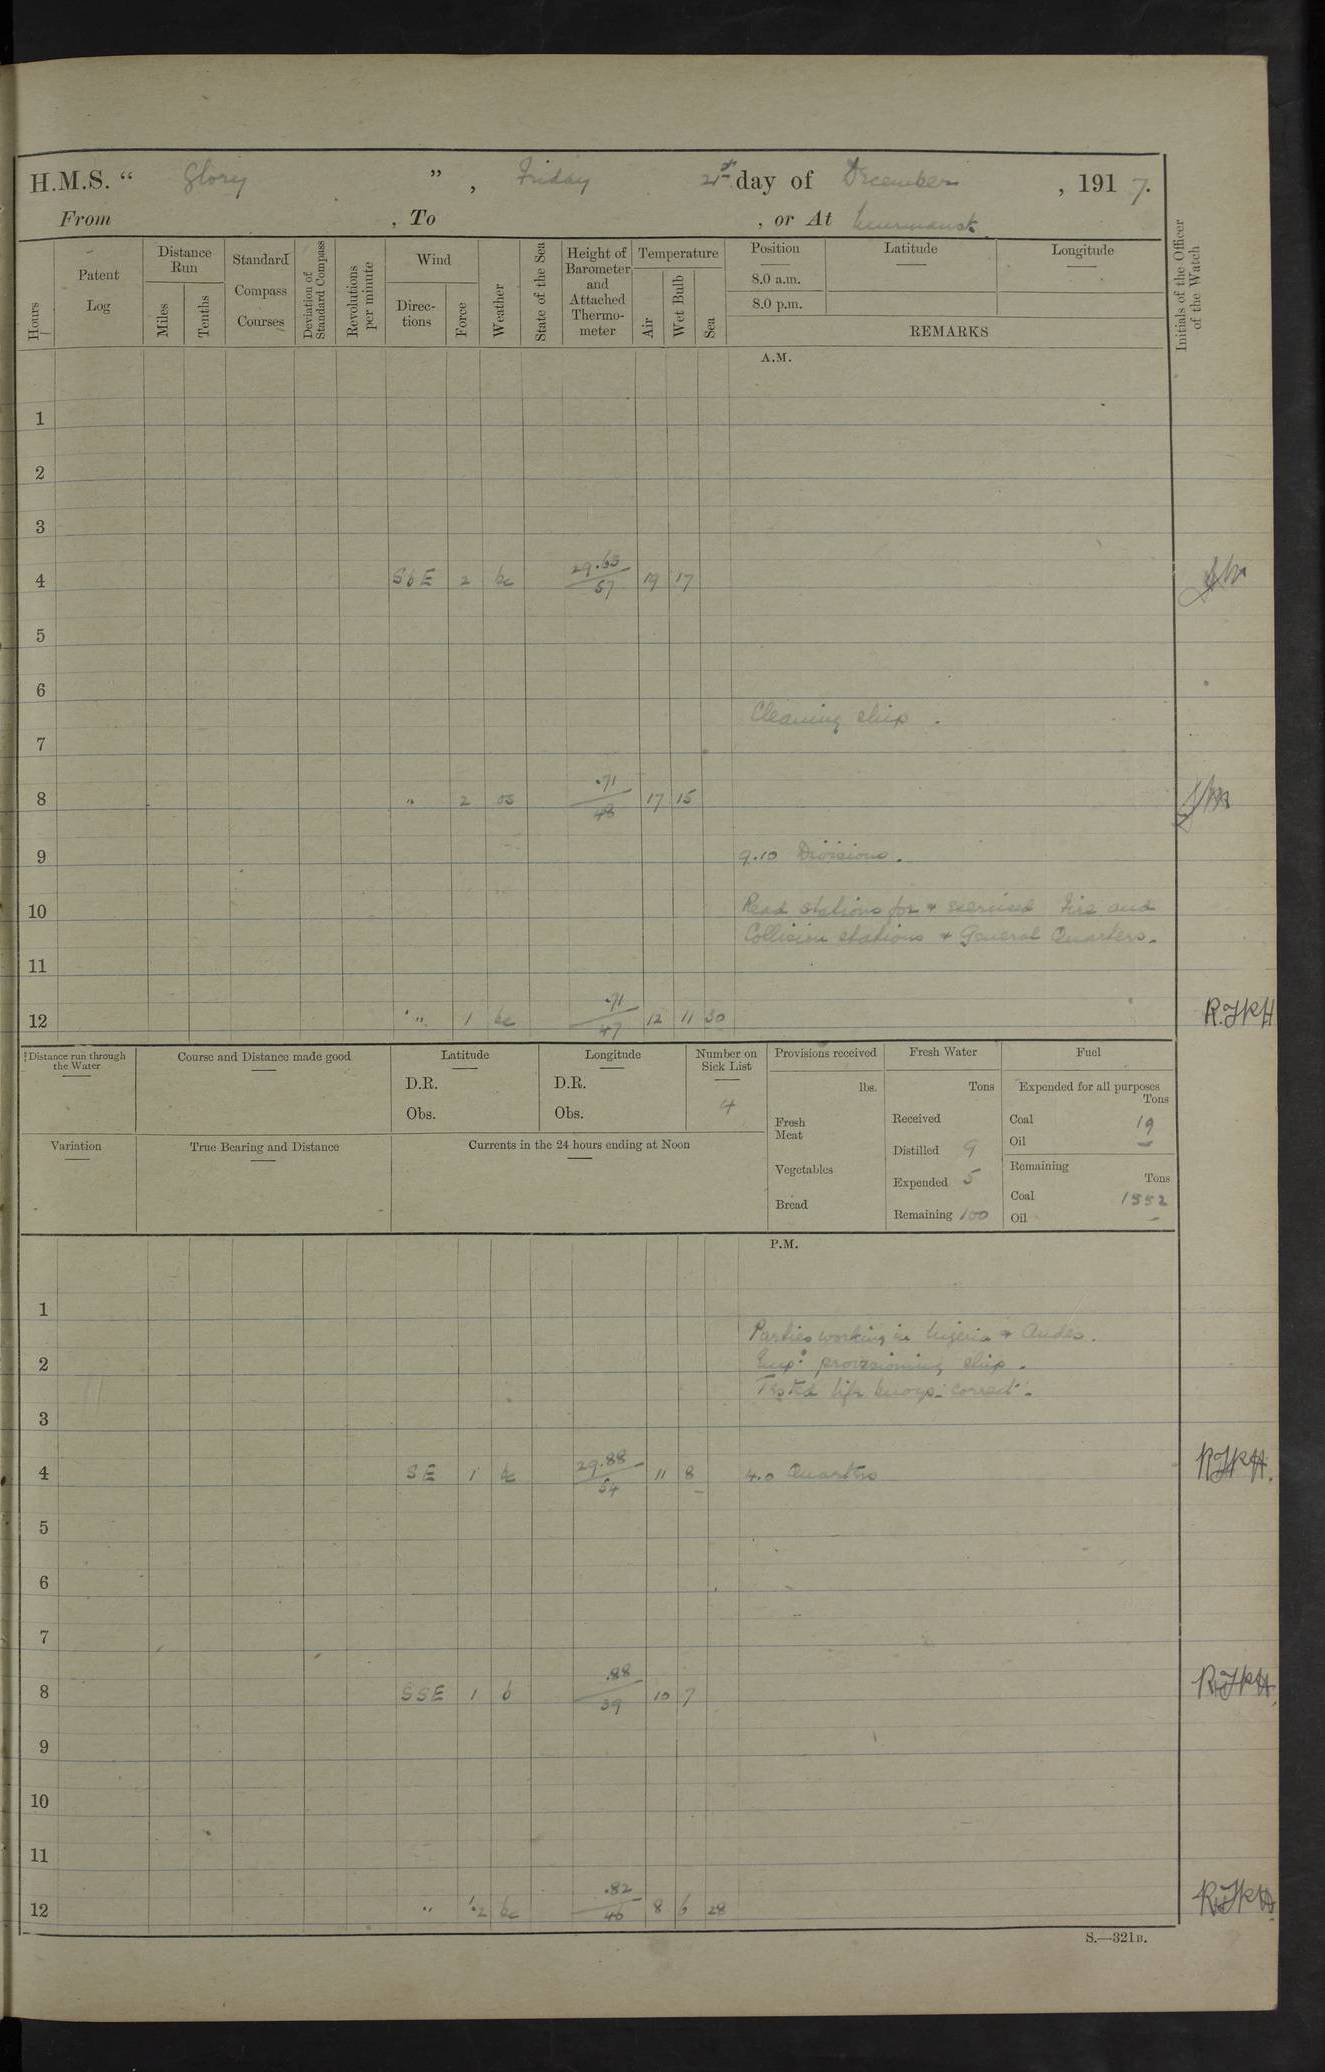 H.M.S. “ Glory ” , Friday 21st day of December , 191 7.
From , To , or At Murmansk.
Hours
Patent Log
Distance Run
Miles
Tenths
Standard Compass Courses
Deviation of Standard Compass
Revolutions per minute
Wind
Direc- tions
Force
Weather
State of the Sea
Height of Barometer and Attached Thermo- meter
Temperature
Air
Wet Bulb
Sea
Position
8.0 a.m.
8.0 p.m.
Latitude
Longitude
REMARKS
Initials of the Officer of the Watch
A.M.
1
2
3
4 SbE 2 bc 29.63 57 19 17
5
6
Cleaning ship.
7
8 " 2 os .71 48 17 15
9 9.10 Divisions.
10 Read stations for & exercised Fire and
Collision stations & General Quarters.
11
12 " 1 bc .71 47 12 11 30 R.JKH
Distance run through the Water
Course and Distance made good
Latitude
D.R.
Obs.
Longitude
D.R.
Obs.
Number on Sick List
4
Provisions received
lbs.
Fresh Meat
Vegetables
Bread
Fresh Water
Tons
Received
Distilled 9
Expended 5
Remaining 100
Fuel
Expended for all purposes
Tons
Coal 19
Oil —
Remaining
Tons
Coal 1552
Oil —
Variation
True Bearing and Distance
Currents in the 24 hours ending at Noon
P.M.
1
Parties working in Nigeria & Andes.
2 Empd provisioning ship.
Tested life buoys - correct.
3
4 SE 1 bc 29.88 54 11 8 4.0 Quarters RJKH.
5
6
7
8 SSE 1 b .88 39 10 7 RJKH
9
10
11
12 " 1.2 bc .82 46 8 6 28 RJKH
S.—321B.